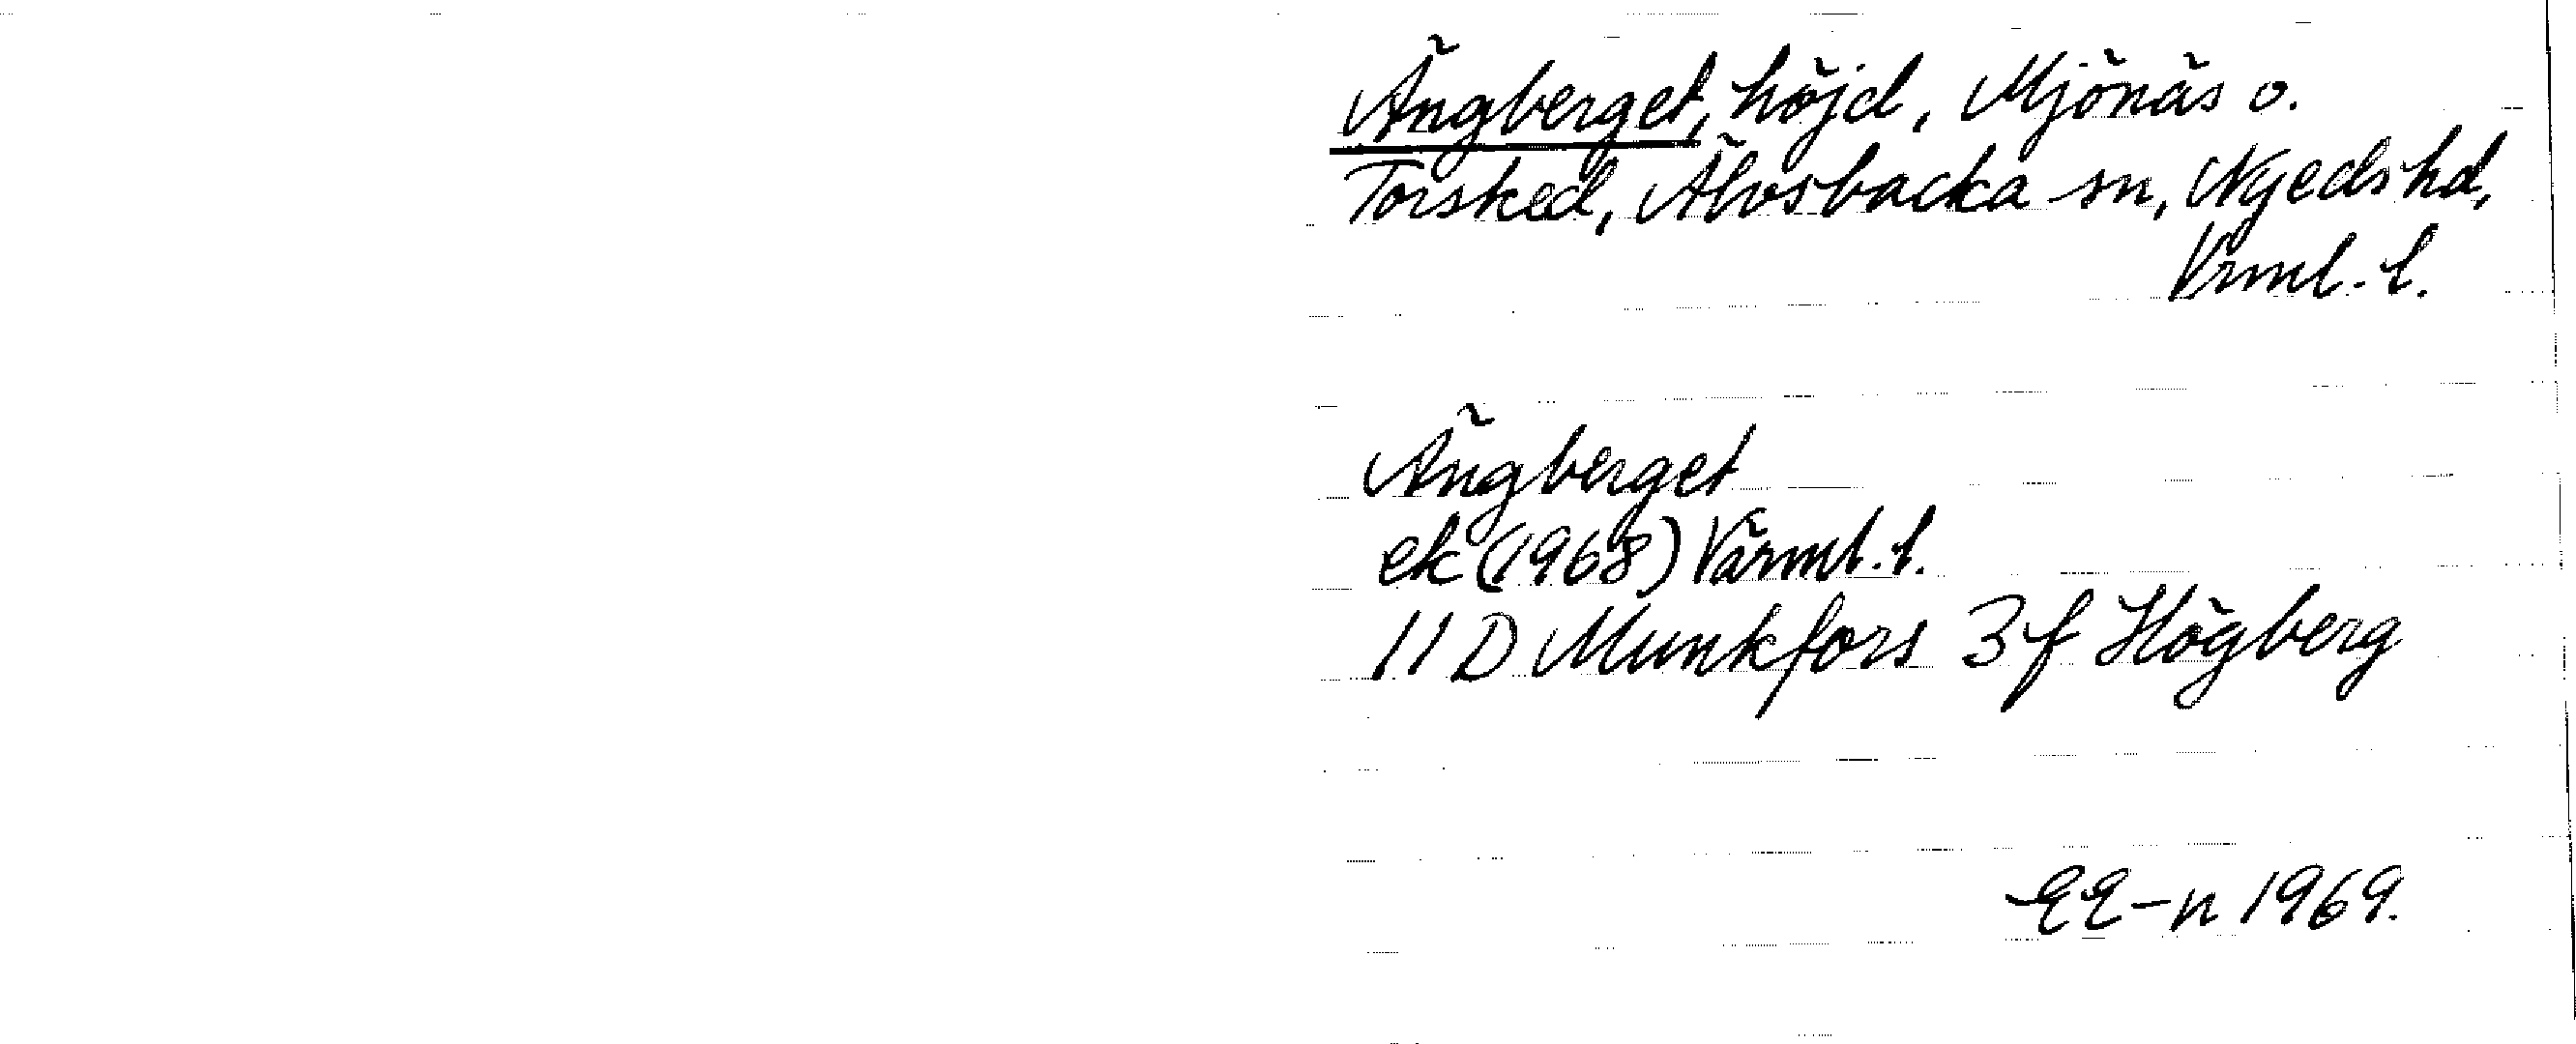 Ängberget, höjd, Mjönäs o.
Torsked, Älvsbacka sn, Nyeds hd,
Vrml. l.
Ängberget
ek (1968) Värml. l.
11 D Munkfors 3 f Högberg
EE-n 1969.